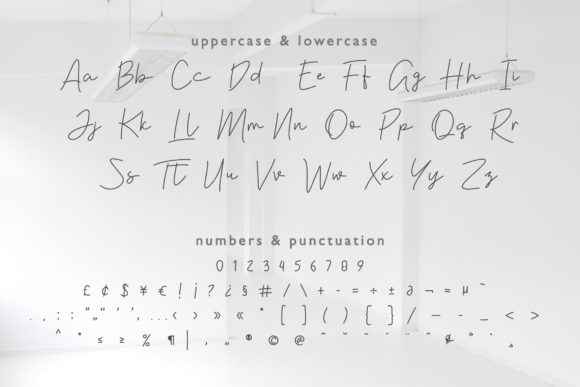 uppercase & lowercase
Aa Bb Cc Dd Ee Ff Gg Hh Ii
Jj Kk Ll Mm Nn Oo Pp Qq Rr
Ss Tt Uu Vv Ww Xx Yy Zz
numbers & punctuation
0 1 2 3 4 5 6 7 8 9
£ ¢ $ ¥ € ! ¡ ? ¿ § # / \ + - = ÷ ± ∂ ¬ ≈ µ ~
. , : ; " „ “ ‘ ’ , ... ‹ › » « * [ ] ( ) [ ] / — - _ < >
^ ° ≤ ≥ % ¶ | , „ ® © @